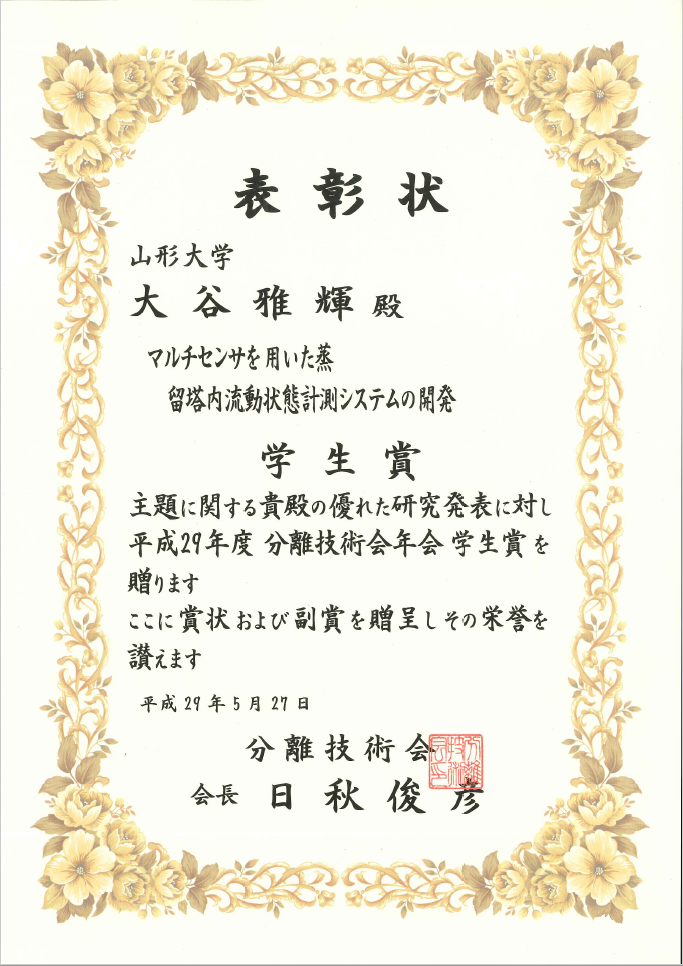 表彰状
山形大学
大谷雅輝殿
マルチセンサを用いた蒸
留塔内流動状態計測システムの開発
学生賞
主題に関する貴殿の優れた研究発表に対し
平成29年度 分離技術会年会 学生賞を
贈ります
ここに賞状および副賞を贈呈しその栄誉を
讃えます
平成29年5月27日
分離技術会
会長 日秋俊彦
分離
技術
会印